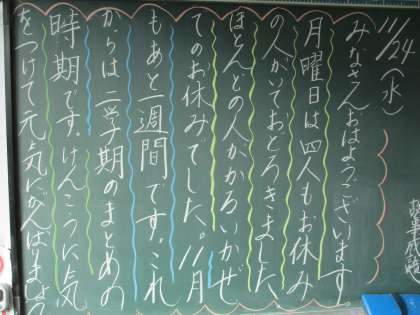 11/24（水）
みなさんおはようございます。
月曜日は四人もお休み
の人がいておどろきました。
ほとんどの人がかるいかぜ
でのお休みでした。11月
もあと一週間です。これ
からは二学期のまとめの
時期です。けんこうに気
をつけて元気にがんばりましょう